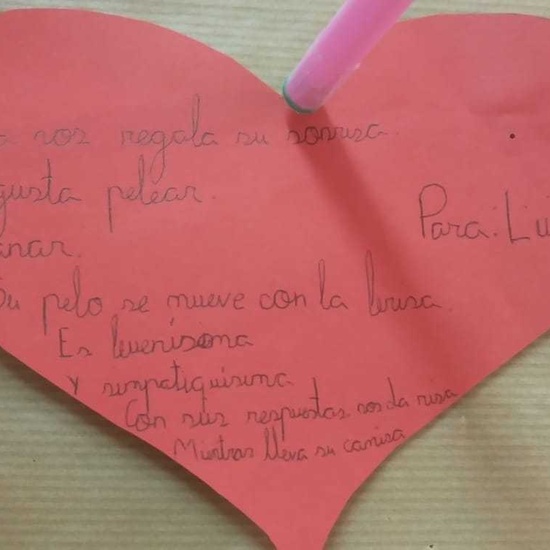 a nos regala su sonrisa
gusta pelear.
anar.
Su pelo se mueve con la brisa.
Para: Lu
Es buenísima
y simpatiquísima
Con sus respuestas nos da risa
Mientras lleva su camisa